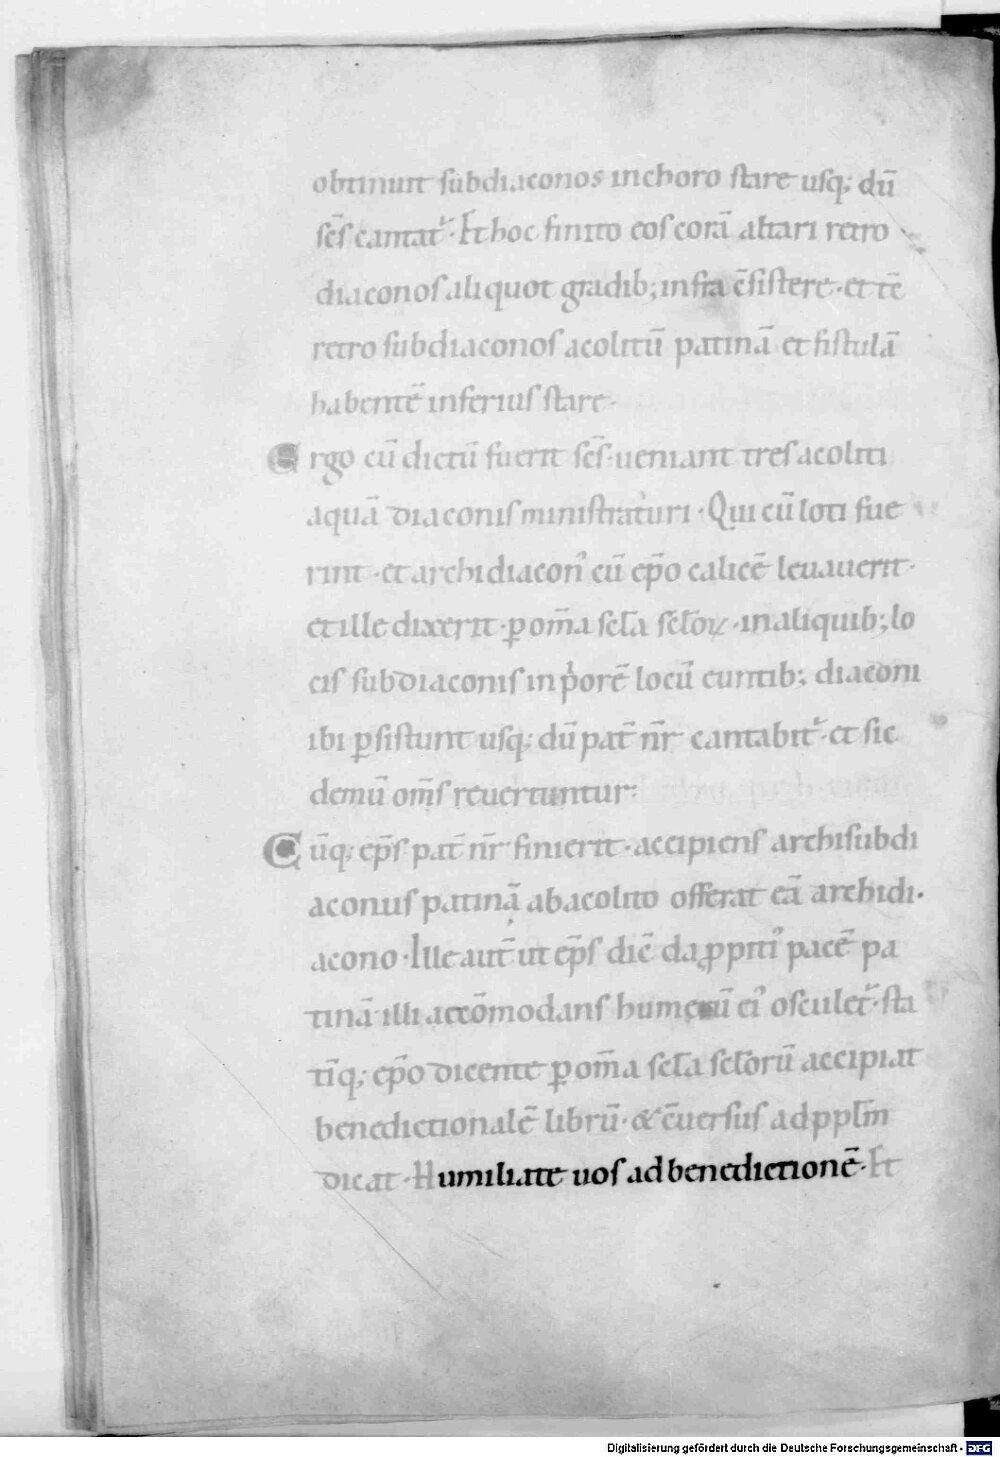 obtinuit subdiaconos in choro stare usq; dū
scs̄ cantat᷑. Et hoc finito eos corā altari retro
diaconos aliquot gradib; infra c̄sistere. et tē
retro subdiaconos acolitū patinā et fistulā
habentē inferius stare.
Ergo cū dictū fuerit scs̄. ueniant tres acoliti
aquā diaconis ministraturi. Qui cū loti fue
rint. et archidiacon᾿ cū ep̄o calicē leuauerit.
et ille dixerit. ꝑ om̄a sc̄la sc̄loꝝ. in aliquib; lo
cis subdiaconis in p̓orē locū euntib; diaconi
ibi ꝑsistunt usq; dū pat̄ nr̄ cantabit᷑. et sic
demū om̄s reuertuntur.
Cūq; ep̄s pat̄ nr̄ finierit. accipiens archisubdi
aconus patinā ab acolito offerat eā archidi.
acono. Ille aut̄ ut ep̄s dic̄ da ꝓpiti᾿ pacē pa
tinā illi accōmodans humerū ei᾿ osculet᷑. sta
tī q; ep̄o dicente ꝑ om̄a sc̄la sc̄lorū accipiat
benedictionalē librū. & c̄uersus ad ppl̄m
dicat. Humiliate uos ad benedictionē. Et
Digitalisierung gefördert durch die Deutsche Forschungsgemeinschaft - DFG